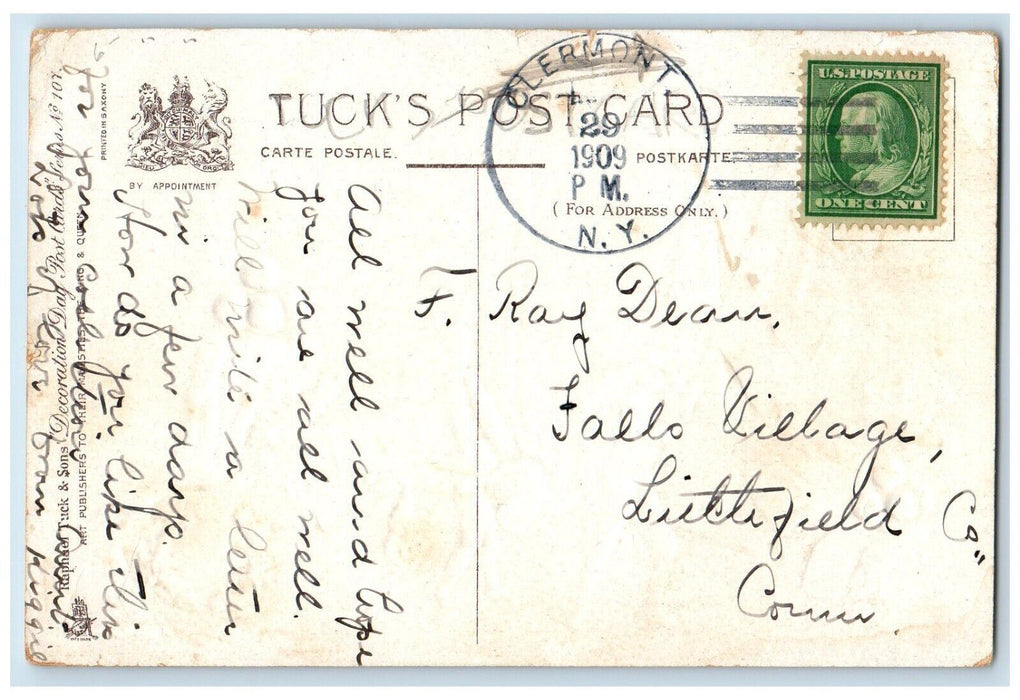 TUCK'S POST CARD
CARTE POSTALE.
POSTKARTE.
(FOR ADDRESS ONLY.)
BY APPOINTMENT
PRINTED IN SAXONY
Raphael Tuck & Sons' "Decoration Day" Post Cards" Series No 107.
ART PUBLISHERS TO THEIR MAJESTIES THE KING & QUEEN
CLERMONT
29
1909
P M.
N. Y.
U.S. POSTAGE
ONE CENT
F. Ray Dean,
Falls Village,
Litthfield Co"
Conn.
All well and hope
you are all well.
Will write a letter
in a few days.
How do you like this
for your collection
Lots of love from